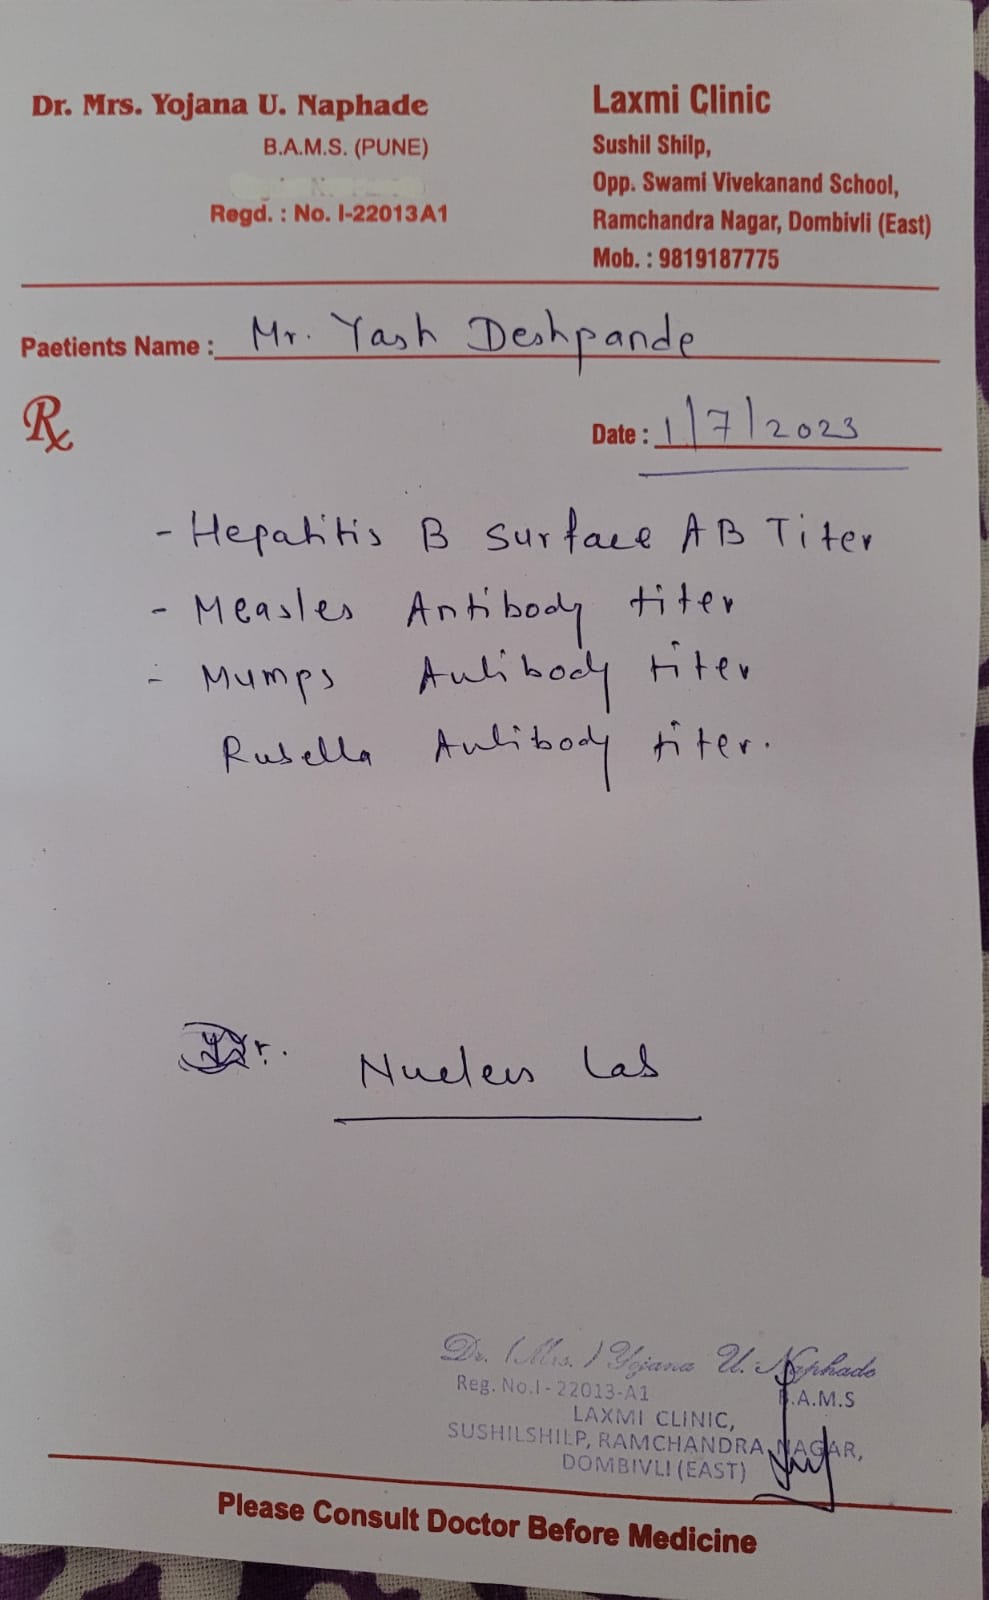 Dr. Mrs. Yojana U. Naphade
B.A.M.S. (PUNE)
Regd. : No. I-22013A1
Laxmi Clinic
Sushil Shilp,
Opp. Swami Vivekanand School,
Ramchandra Nagar, Dombivli (East)
Mob. : 9819187775
Paetients Name : Mr. Yash Deshpande
Rx
Date : 1/7/2023
- Hepatitis B Surface AB Titer
- Measles Antibody titer
- Mumps Antibody titer
Rubella Antibody titer.
Nucleus Lab
Dr. (Mrs.) Yojana U. Naphade
Reg. No.I - 22013-A1 B.A.M.S
LAXMI CLINIC,
SUSHILSHILP, RAMCHANDRA NAGAR,
DOMBIVLI (EAST)
Please Consult Doctor Before Medicine